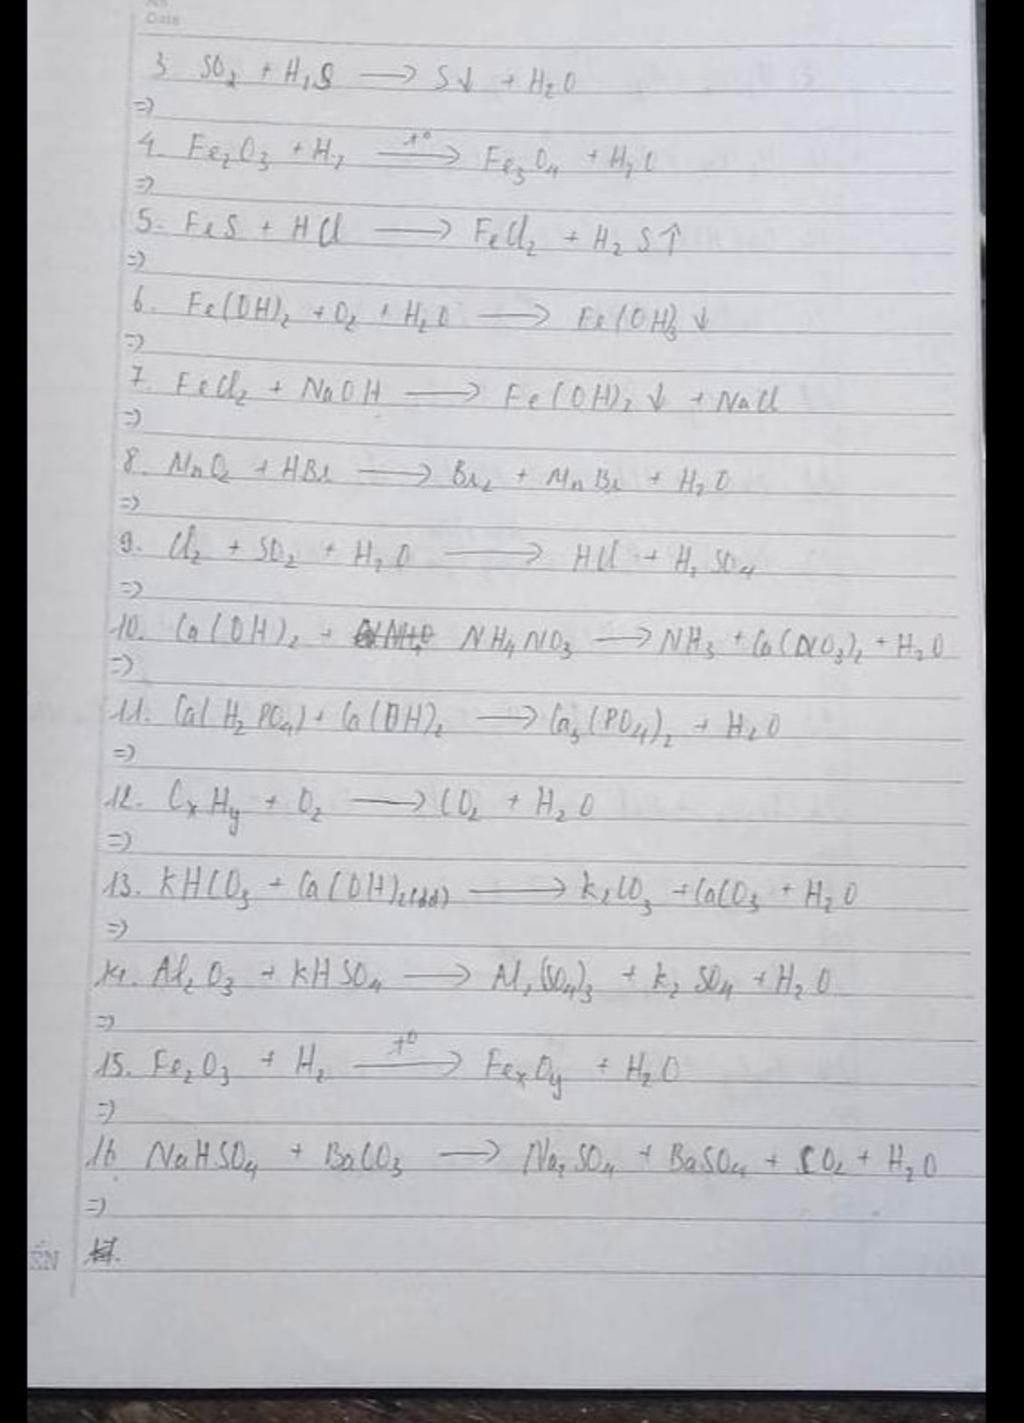 Date
3. SO2 + H2S ⟶ S↓ + H2O
=>
4. Fe2O3 + H2 —t°→ Fe3O4 + H2O
=>
5. FeS + HCl ⟶ FeCl2 + H2S↑
=>
6. Fe(OH)2 + O2 + H2O ⟶ Fe(OH)3 ↓
=>
7. FeCl2 + NaOH ⟶ Fe(OH)2 ↓ + NaCl
=>
8. MnO2 + HBr ⟶ Br2 + MnBr + H2O
=>
9. Cl2 + SO2 + H2O ⟶ HCl + H2SO4
=>
10. Ca(OH)2 + NH4NO3 ⟶ NH3 + Ca(NO3)2 + H2O
=>
11. Ca(H2PO4) + Ca(OH)2 ⟶ Ca3(PO4)2 + H2O
=>
12. CxHy + O2 ⟶ CO2 + H2O
=>
13. KHCO3 + Ca(OH)2(dd) ⟶ K2CO3 + CaCO3 + H2O
=>
14. Al2O3 + KHSO4 ⟶ Al2(SO4)3 + K2SO4 + H2O
=>
15. Fe2O3 + H2 —t°→ FexOy + H2O
=>
16 NaHSO4 + BaCO3 ⟶ Na2SO4 + BaSO4 + CO2 + H2O
=>